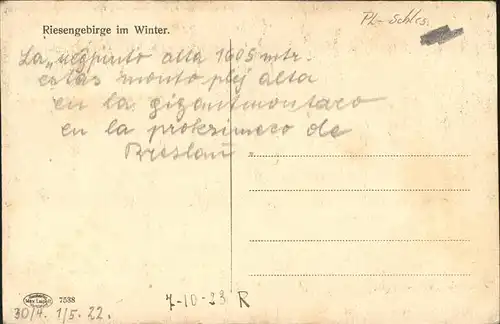 Pl-Schles.
Riesengebirge im Winter.
La „neĝpinto alta 1605 mtr.
estas monto plej alta
en la gigantmontaro
en la proksimeco de
Breslaŭ
7538
7-10-23 R
30/4. 1/5. 22.